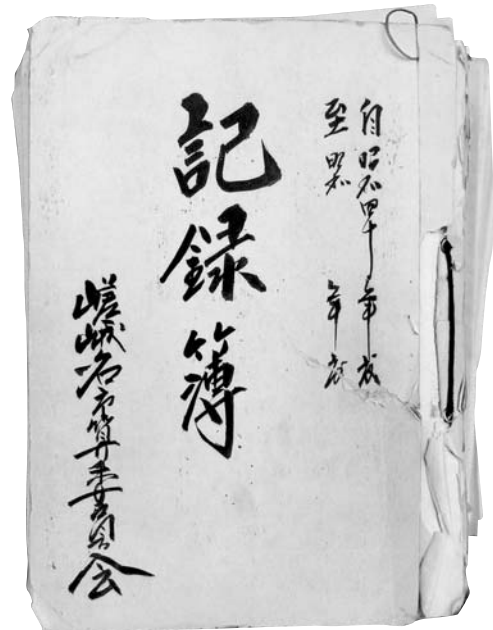 自昭和四十年度
至昭和 年度
記録簿
嵯峨
委員会